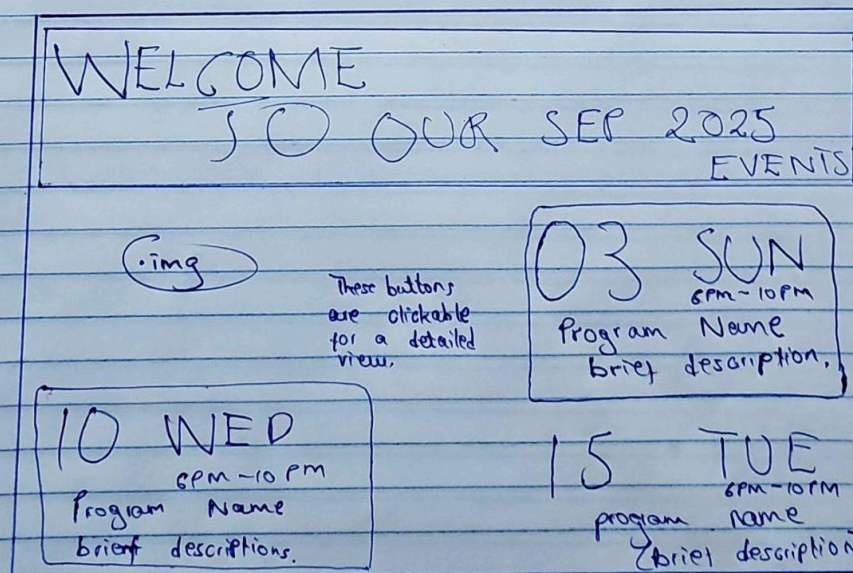 WELCOME
TO OUR SEP 2025
EVENTS
.img
These buttons
are clickable
for a detailed
view.
03 SUN
6PM-10PM
Program Name
brief description.
10 WED
6PM-10PM
Program Name
brief descriptions.
15 TUE
6PM-10PM
program name
brief description